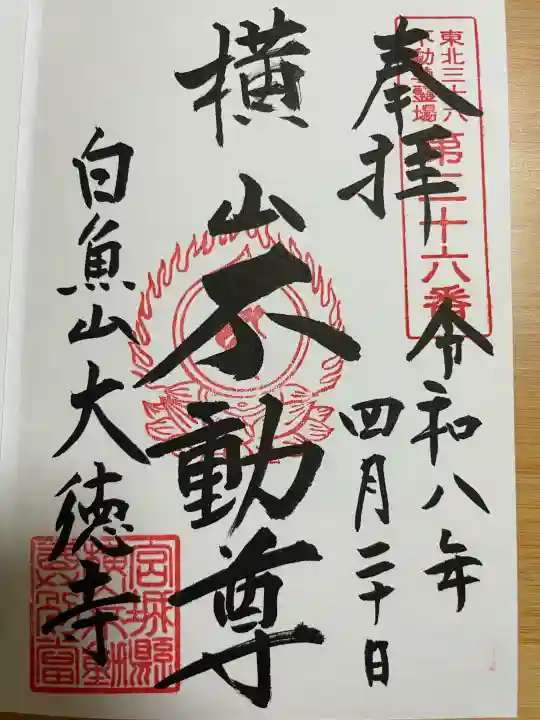 東北三十六
不動尊霊場
第二十六番
奉拝
令和八年
四月二十日
横山不動尊
白魚山大徳寺
宮城縣